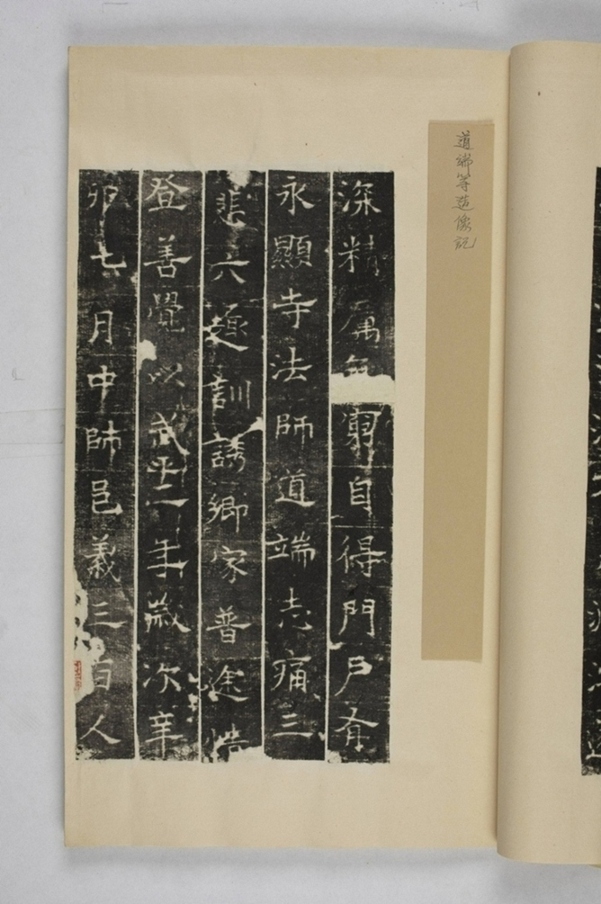 道端等造像記
深精属無窮自得門戸有
永顯寺法師道端志痛三
悲六趣訓誘鄉家普途
登善覺以武平二年歲次辛
卯七月中師邑義三百人